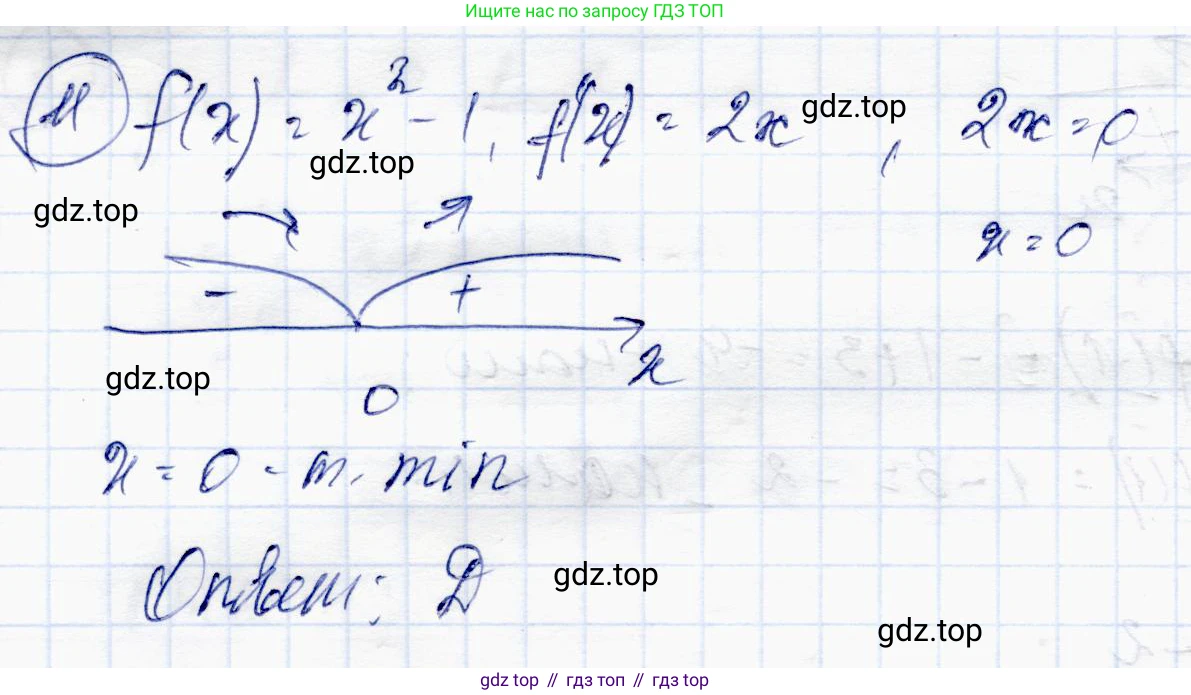 Ищите нас по запросу ГДЗ ТОП
11 f(x) = x² - 1, f'(x) = 2x, 2x = 0
gdz.top
gdz.top
gdz.top
x = 0
- +
x
gdz.top
0
x = 0 - т. min
Ответ: D
gdz.top
gdz.top
gdz top // гдз топ // гдз top